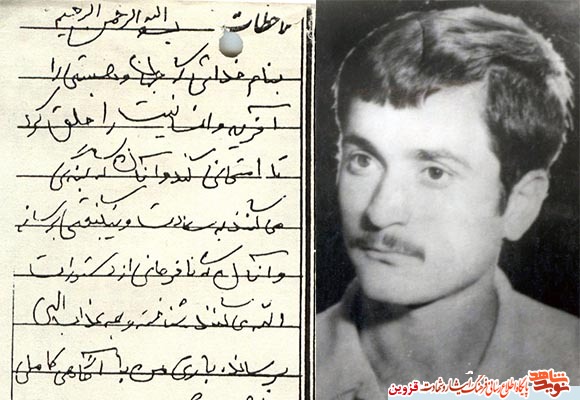 ملاحظات
بسم الله الرحمن الرحیم
بنام خدائی که جهان و هستی را
آفرید و انسانیت را خلق کرد
تا امتحانی کند و آنان که بندگی
می‌کنند به سعادت و نیکبختی برساند
و آنان که نافرمانی از دستورات
الهی می‌کنند شناخته و به عذاب الهی
برساند. باری من با آگاهی کاملی
نوید شاهد
پایگاه اطلاع رسانی فرهنگ ایثار و شهادت قزوین